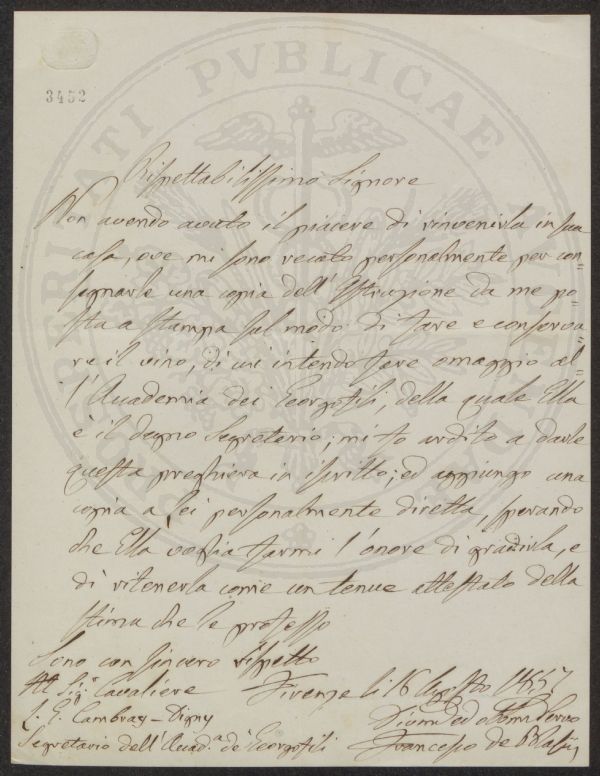 PROSPERITATI PVBLICAE AVGENDAE
3452
Rispettabilissimo Signore
Non avendo avuto il piacere di rinvenirla in sua
casa, ove mi sono recato personalmente per con=
segnarle una copia dell'Istruzione da me po=
sta a stampa sul modo di fare e conserva=
re il vino, di cui intendo fare omaggio al=
l'Accademia dei Georgofili, della quale Ella
è il degno Segretario; mi fo ardito a darle
questa preghiera in iscritto; ed aggiungo una
copia a Lei personalmente diretta, sperando
che Ella voglia farmi l'onore di gradirla, e
di ritenerla come un tenue attestato della
stima che le professo
Sono con sincero rispetto
Al Sig.r Cavaliere Firenze li 16 Agosto 1857
L. G. Cambray-Digny Servo
Segretario dell'Accad.a de' Georgofili Francesco de Blasiis